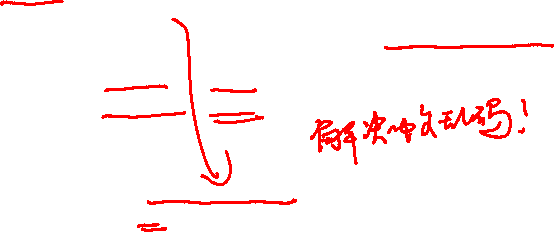 解决中文乱码!